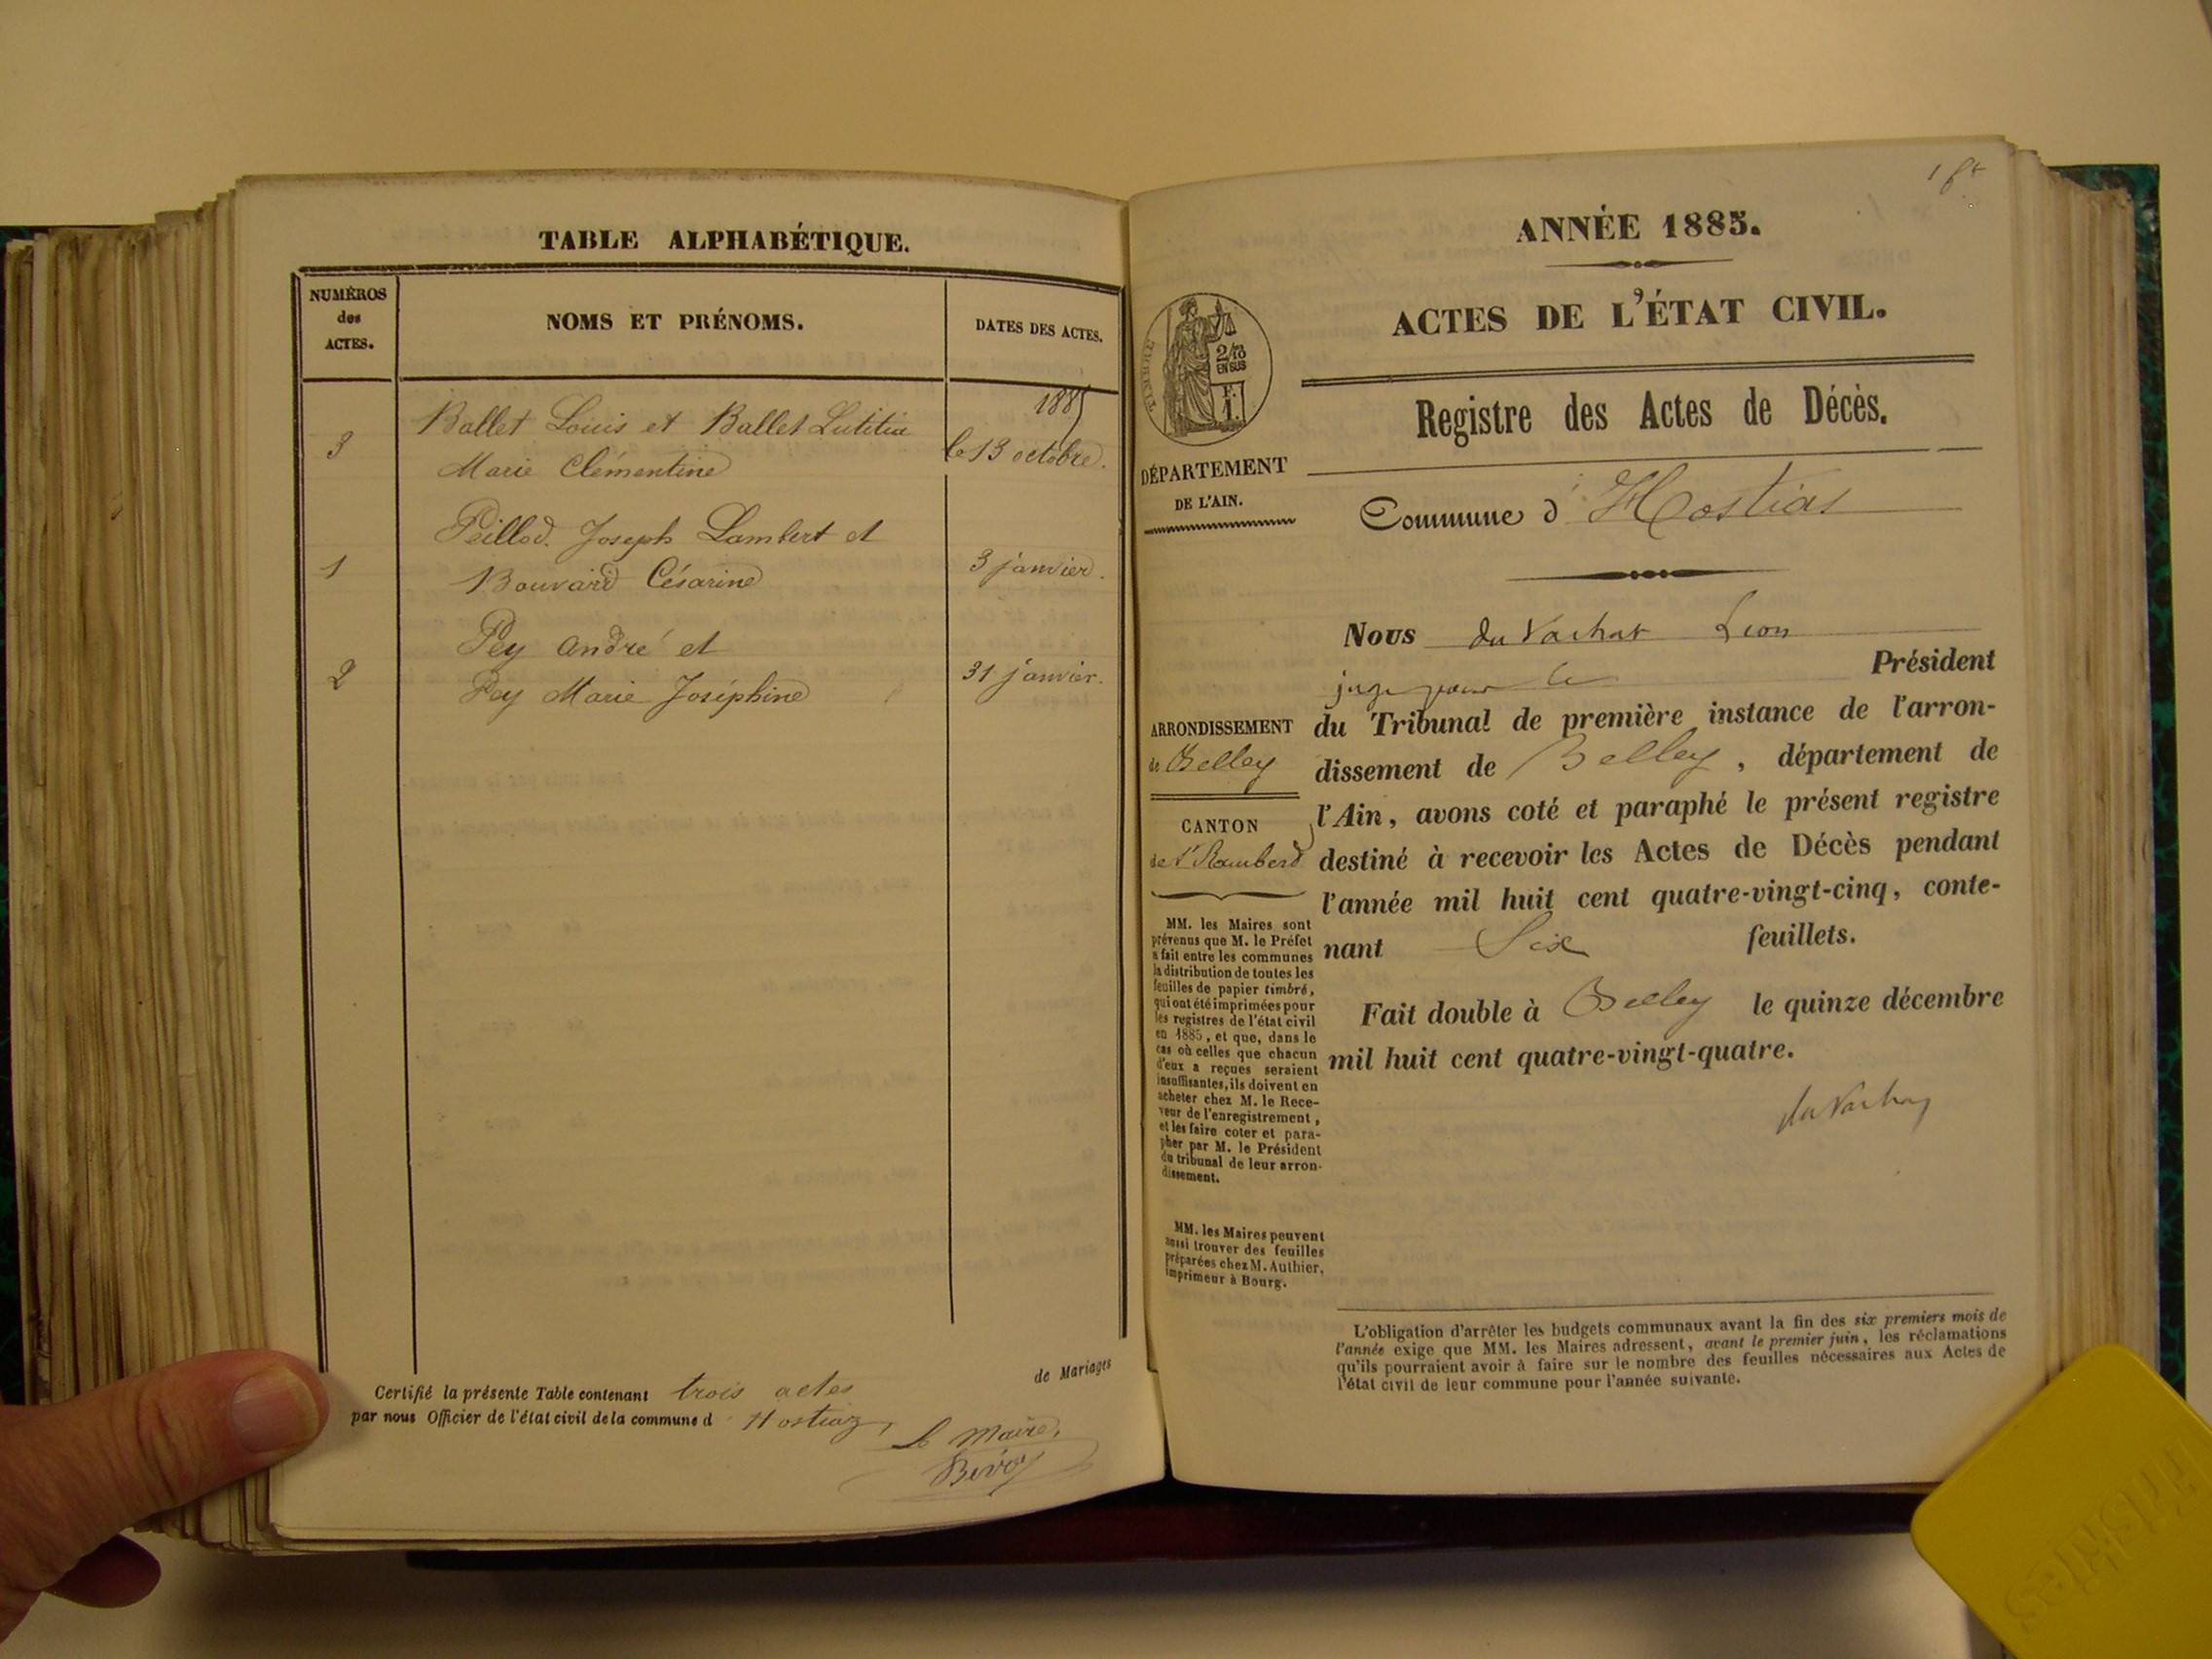 TABLE ALPHABÉTIQUE.
NUMÉROS
des
ACTES.
NOMS ET PRÉNOMS.
DATES DES ACTES.
1885
3 Ballet Louis et Ballet Lutitia le 13 octobre.
Marie Clémentine
Peillod Joseph Lambert et
1 Bouvard Césarine 3 janvier.
Pey André et
2 Pey Marie Joséphine 31 janvier.
Certifié la présente Table contenant trois actes de Mariages
par nous Officier de l'état civil de la commune d Hostiaz,
Le Maire,
1 ft
ANNÉE 1885.
ACTES DE L'ÉTAT CIVIL.
TIMBRE
2/10
EN SUS
F.
1.
Registre des Actes de Décès.
DÉPARTEMENT
DE L'AIN.
Commune d' Hostias
Nous du Vachat Léon
juge pour le Président
du Tribunal de première instance de l'arron-
ARRONDISSEMENT
de Belley
dissement de Belley, département de
l'Ain, avons coté et paraphé le présent registre
CANTON
de St Rambert
destiné à recevoir les Actes de Décès pendant
l'année mil huit cent quatre-vingt-cinq, conte-
nant Six feuillets.
Fait double à Belley le quinze décembre
mil huit cent quatre-vingt-quatre.
du Vachat
MM. les Maires sont
prévenus que M. le Préfet
a fait entre les communes
la distribution de toutes les
feuilles de papier timbré,
qui ont été imprimées pour
les registres de l'état civil
en 1885, et que, dans le
cas où celles que chacun
d'eux a reçues seraient
insuffisantes, ils doivent en
acheter chez M. le Rece-
veur de l'enregistrement,
et les faire coter et para-
pher par M. le Président
du tribunal de leur arron-
dissement.
MM. les Maires peuvent
aussi trouver des feuilles
préparées chez M. Authier,
imprimeur à Bourg.
L'obligation d'arrêter les budgets communaux avant la fin des six premiers mois de
l'année exige que MM. les Maires adressent, avant le premier juin, les réclamations
qu'ils pourraient avoir à faire sur le nombre des feuilles nécessaires aux Actes de
l'état civil de leur commune pour l'année suivante.